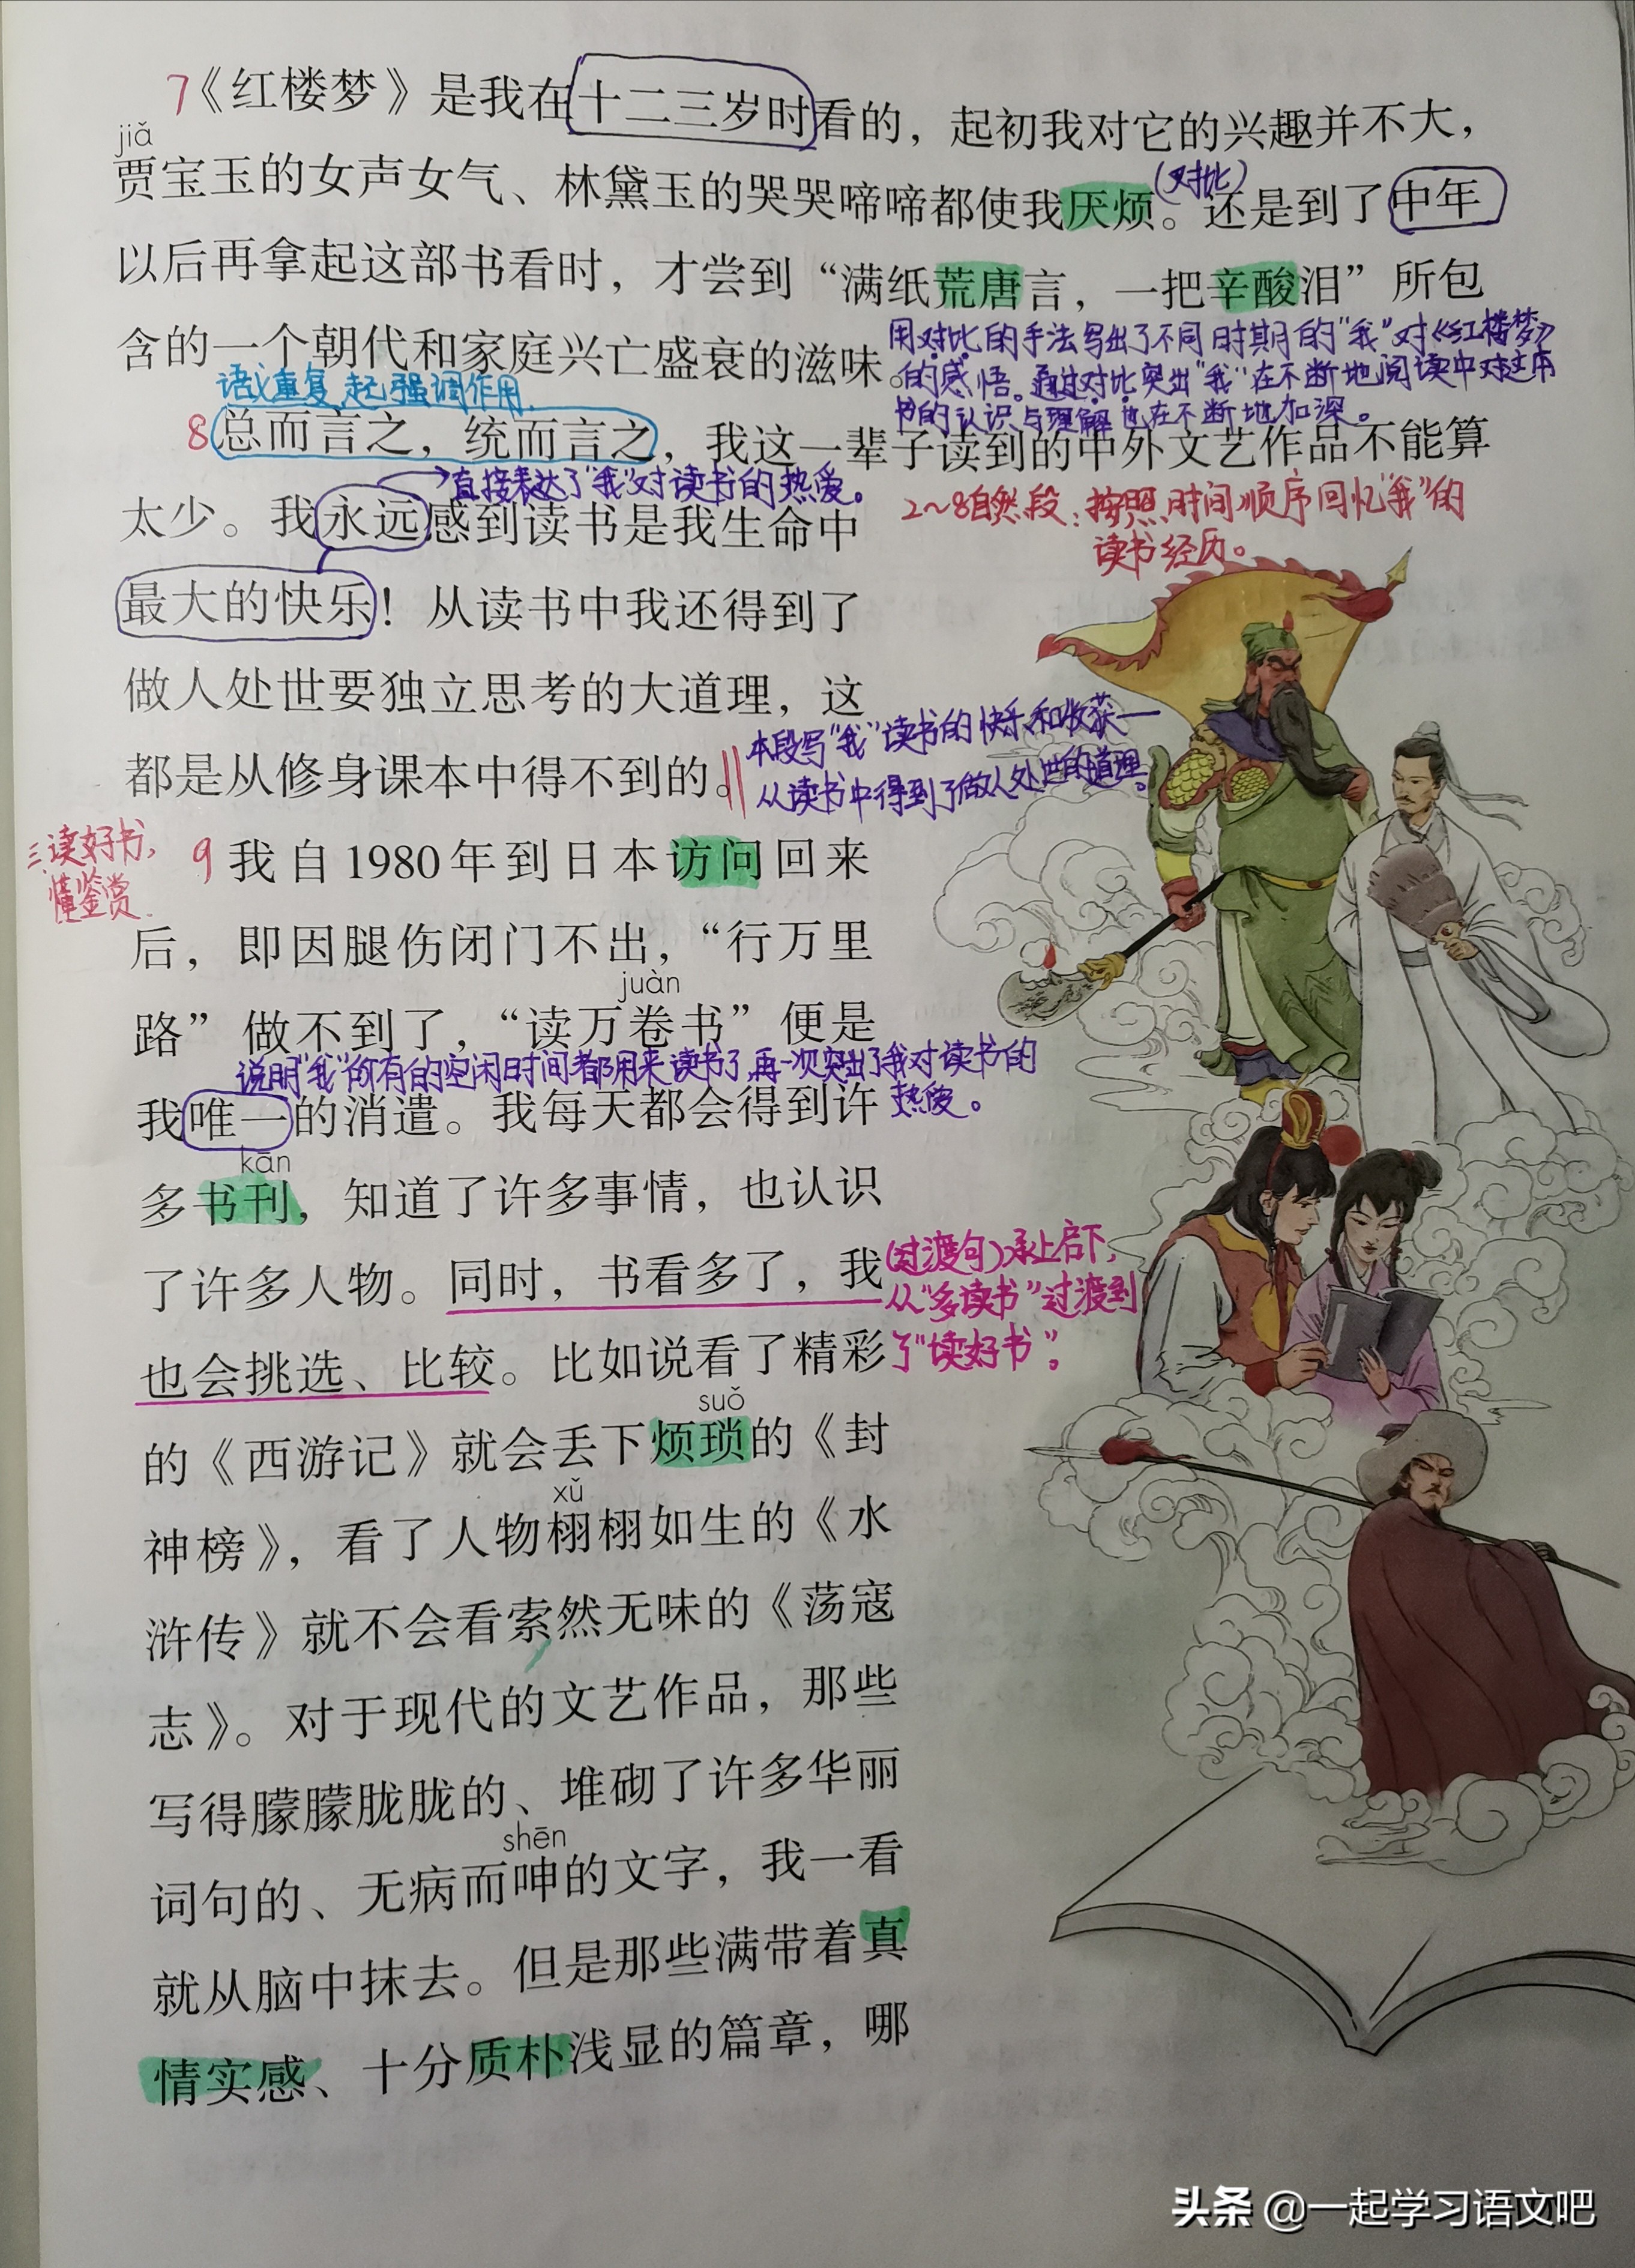 7《红楼梦》是我在十二三岁时看的，起初我对它的兴趣并不大，
jiǎ
贾宝玉的女声女气、林黛玉的哭哭啼啼都使我厌烦。还是到了中年
(对比)
以后再拿起这部书看时，才尝到“满纸荒唐言，一把辛酸泪”所包
含的一个朝代和家庭兴亡盛衰的滋味。
用对比的手法写出了不同时期的“我”对《红楼梦》
的感悟。通过对比突出“我”在不断地阅读中对这本
书的认识与理解也在不断地加深。
语义重复,起强调作用.
8总而言之，统而言之，我这一辈子读到的中外文艺作品不能算
直接表达了“我”对读书的热爱。
太少。我永远感到读书是我生命中
2～8自然段:按照时间顺序回忆“我”的
读书经历。
最大的快乐！从读书中我还得到了
做人处世要独立思考的大道理，这
都是从修身课本中得不到的。
本段写“我”读书的快乐和收获—
从读书中得到了做人处世的道理。
三.读好书,
懂鉴赏.
9我自1980年到日本访问回来
后，即因腿伤闭门不出，“行万里
juàn
路”做不到了，“读万卷书”便是
说明“我”所有的空闲时间都用来读书了,再一次突出了我对读书的
热爱。
我唯一的消遣。我每天都会得到许
kān
多书刊，知道了许多事情，也认识
了许多人物。同时，书看多了，我
也会挑选、比较。比如说看了精彩
(过渡句)承上启下,
从“多读书”过渡到
了“读好书”。
suǒ
的《西游记》就会丢下烦琐的《封
xǔ
神榜》，看了人物栩栩如生的《水
浒传》就不会看索然无味的《荡寇
志》。对于现代的文艺作品，那些
写得朦朦胧胧的、堆砌了许多华丽
shēn
词句的、无病而呻的文字，我一看
就从脑中抹去。但是那些满带着真
情实感、十分质朴浅显的篇章，哪
头条 @一起学习语文吧